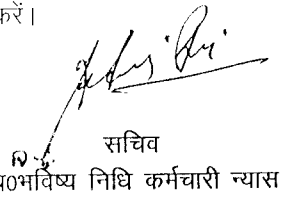 करें।
सचिव
भविष्य निधि कर्मचारी न्यास